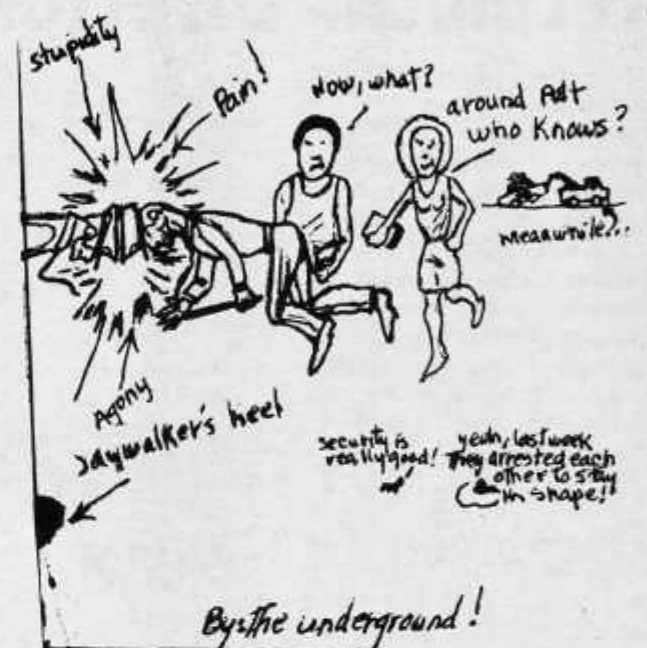 stupidity
Pain!
Now, what?
around
who knows?
meanwhile?..
Agony
Jaywalker's heel
security is
really good!
yeah, last week
they arrested each
other to stay
in shape!
By: The underground!